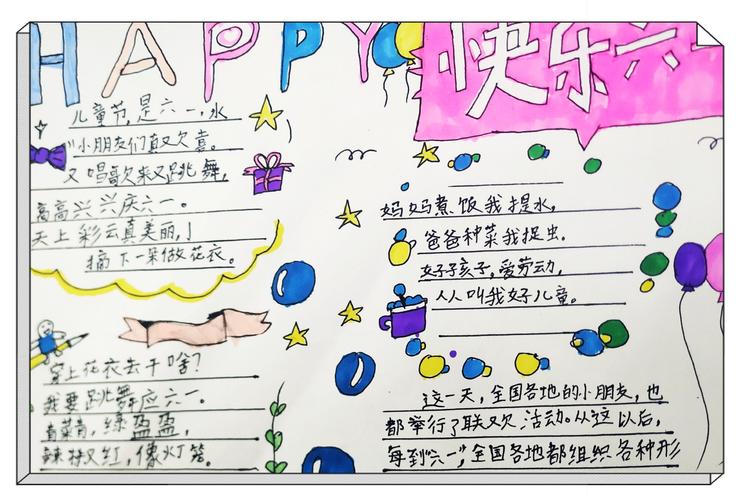 HAPPY
快乐六一
儿童节,是六一,水
小朋友们真又欢喜。
又唱歌来又跳舞,
高高兴兴庆六一。
天上彩云真美丽,
摘下一朵做花衣。
穿上花衣去干啥?
我要跳舞应六一。
青菜青,绿盈盈,
辣椒又红,像火灯笼。
妈妈煮饭我提水,
爸爸种菜我捉虫。
好子孩子,爱劳动,
人人叫我好儿童。
这一天,全国各地的小朋友,也
都举行了联欢活动。从这以后,
每到"六一",全国各地都组织各种形